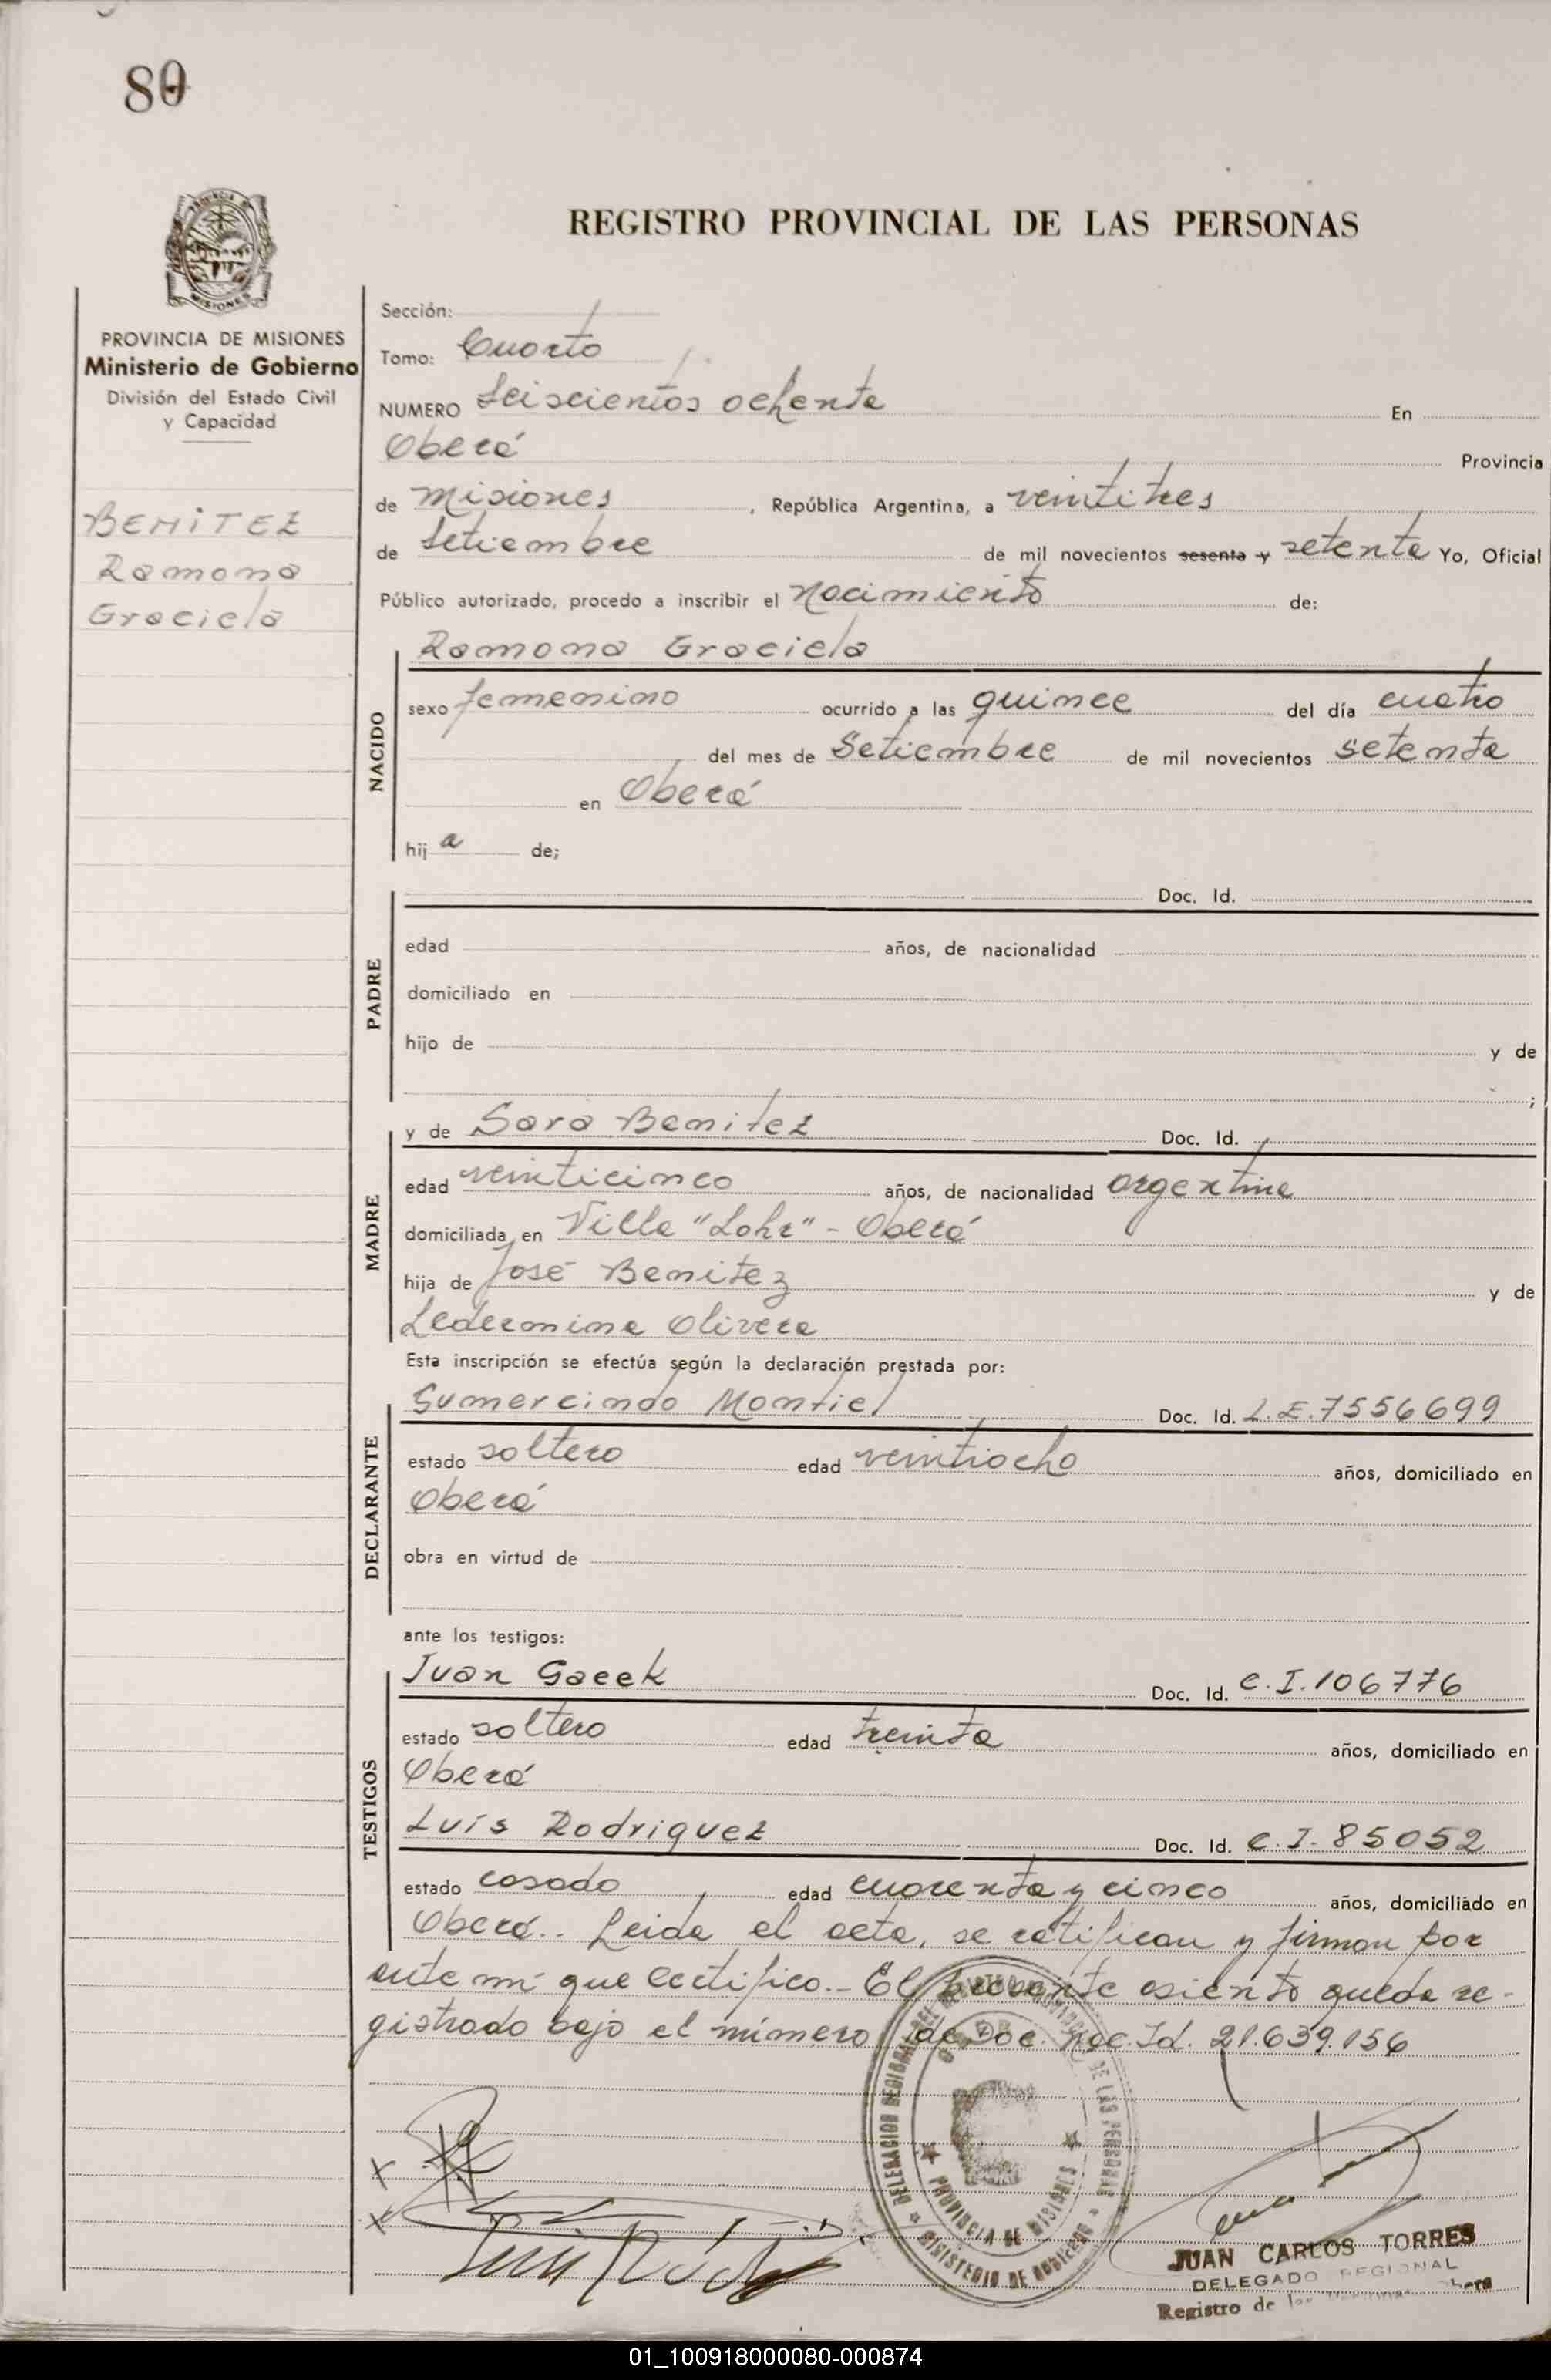 80
REGISTRO PROVINCIAL DE LAS PERSONAS
PROVINCIA DE MISIONES
Ministerio de Gobierno
División del Estado Civil
y Capacidad
BENITEZ
Ramona
Graciela
Sección:
Tomo: Cuarto
NUMERO Seiscientos ochenta En
Oberá Provincia
de Misiones, República Argentina, a veintitres
de Setiembre de mil novecientos sesenta y setenta Yo, Oficial
Público autorizado, procedo a inscribir el Nacimiento de:
NACIDO
Ramona Graciela
sexo femenino ocurrido a las quince del día cuatro
del mes de Setiembre de mil novecientos setenta
en Oberá
hij a de;
PADRE
Doc. Id.
edad años, de nacionalidad
domiciliado en
hijo de y de
;
MADRE
y de Sara Benitez Doc. Id.
edad veinticinco años, de nacionalidad argentina
domiciliada en Villa "Lohr" - Oberá
hija de José Benitez y de
Ledermina Olivera
Esta inscripción se efectúa según la declaración prestada por:
DECLARANTE
Gumercindo Montiel Doc. Id. L.E. 7556699
estado soltero edad veintiocho años, domiciliado en
Oberá
obra en virtud de
ante los testigos:
TESTIGOS
Juan Gacek Doc. Id. C.I. 106776
estado soltero edad treinta años, domiciliado en
Oberá
Luís Rodriguez Doc. Id. C.I. 85052
estado casado edad cuarenta y cinco años, domiciliado en
Oberá.- Leida el acta, se ratifican y firman por
ante mí que certifico.- El presente asiento queda re-
gistrado bajo el número de Doc. Nac. Id. 21.639.156
DELEGACION REGIONAL DEL REGISTRO PROVINCIAL DE LAS PERSONAS
MINISTERIO DE GOBIERNO
PROVINCIA DE MISIONES
JUAN CARLOS TORRES
DELEGADO REGIONAL
Registro de las Personas
01_100918000080-000874